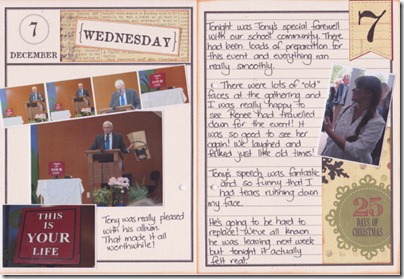 7
DECEMBER
WEDNESDAY
THIS
IS
YOUR
LIFE
Tony was really pleased
with his album.
That made it all
worthwhile!
Tonight was Tony's special farewell
with our school community. There
had been loads of preparation for
this event and everything ran
really smoothly.
There were lots of "old"
faces at the gathering and
I was really happy to
see Renee had travelled
down for the event! It
was so good to see her
again! We laughed and
talked just like old times!
Tony's speech was fantastic
and so funny that I
had tears running down
my face.
He's going to be hard to
replace! We've all known
he was leaving next week
but tonight it actually
felt real.
7
25
DAYS OF
CHRISTMAS